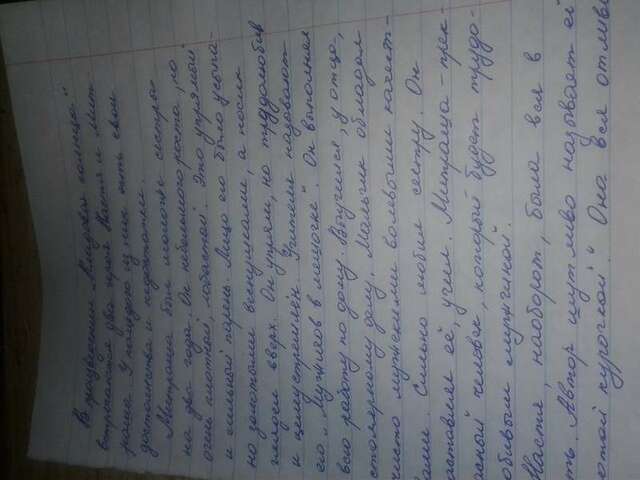 В произведении "Кладовая солнца"
встречаются два героя Настя и Мит-
раша. У каждого из них есть свои
достоинства и недостатки.
Митраша был моложе сестры
на два года. Он небольшого роста, но
очень плотный, лобастый. Это упрямый
и сильный парень. Лицо его было усыпа-
но золотыми веснушками, а носик
глядел вверх. Он упрям, но трудолюбив
и целеустремлён. Учителя называют
его "Мужичков в мешочке". Он выполнял
всю работу по дому. Выучился, у отца,
столярному делу. Мальчик обладал
чисто мужскими волевыми качест-
вами. Сильно любил сестру. Он
аставлял её, учил. Митраша - прек-
асный человек, который будет трудо-
юбивым мужчиной.
Настя, наоборот, была вся в
ть. Автор шутливо называет её
отой курочкой". Она вся отлив